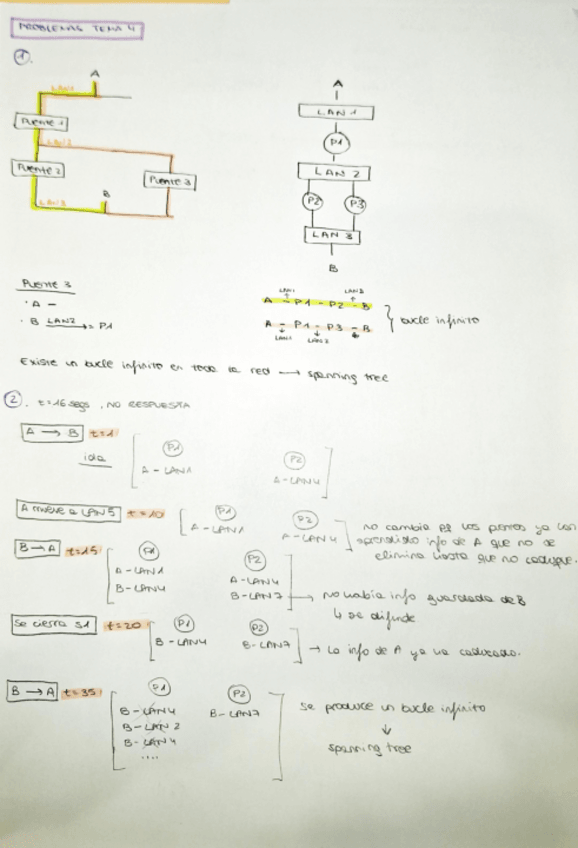 PROBLEMAS TEMA 4
1.
A
LAN1
PUENTE 1
LAN2
PUENTE 2
PUENTE 3
LAN3
B
A
LAN 1
P1
LAN 2
P2
P3
LAN 3
B
PUENTE 3
· A -
· B LAN2 P1
LAN1 LAN3
A - P1 - P2 - B
A - P1 - P3 - B
LAN1 LAN2
bucle infinito
Existe un bucle infinito en toda la red → spanning tree
2. t=16 segs, NO RESPUESTA
A → B t=1
ida
P1 P2
A - LAN1 A - LAN4
A mueve a LAN5 t=10
P1 P2
A - LAN1 A - LAN4
no cambia los puentes ya han
aprendido info de A que no se
elimina hasta que no caduque.
B → A t=15
P1 P2
A - LAN1 A - LAN4
B - LAN4 B - LAN7 → No había info guardada de B
↳ se difunde
Se cierra S1 t=20
P1 P2
B - LAN4 B - LAN7 → La info de A ya ha caducado.
B → A t=35
P1 P2
B - LAN4 B - LAN7
B - LAN 2
B - LAN4
....
Se produce un bucle infinito
↓
spanning tree